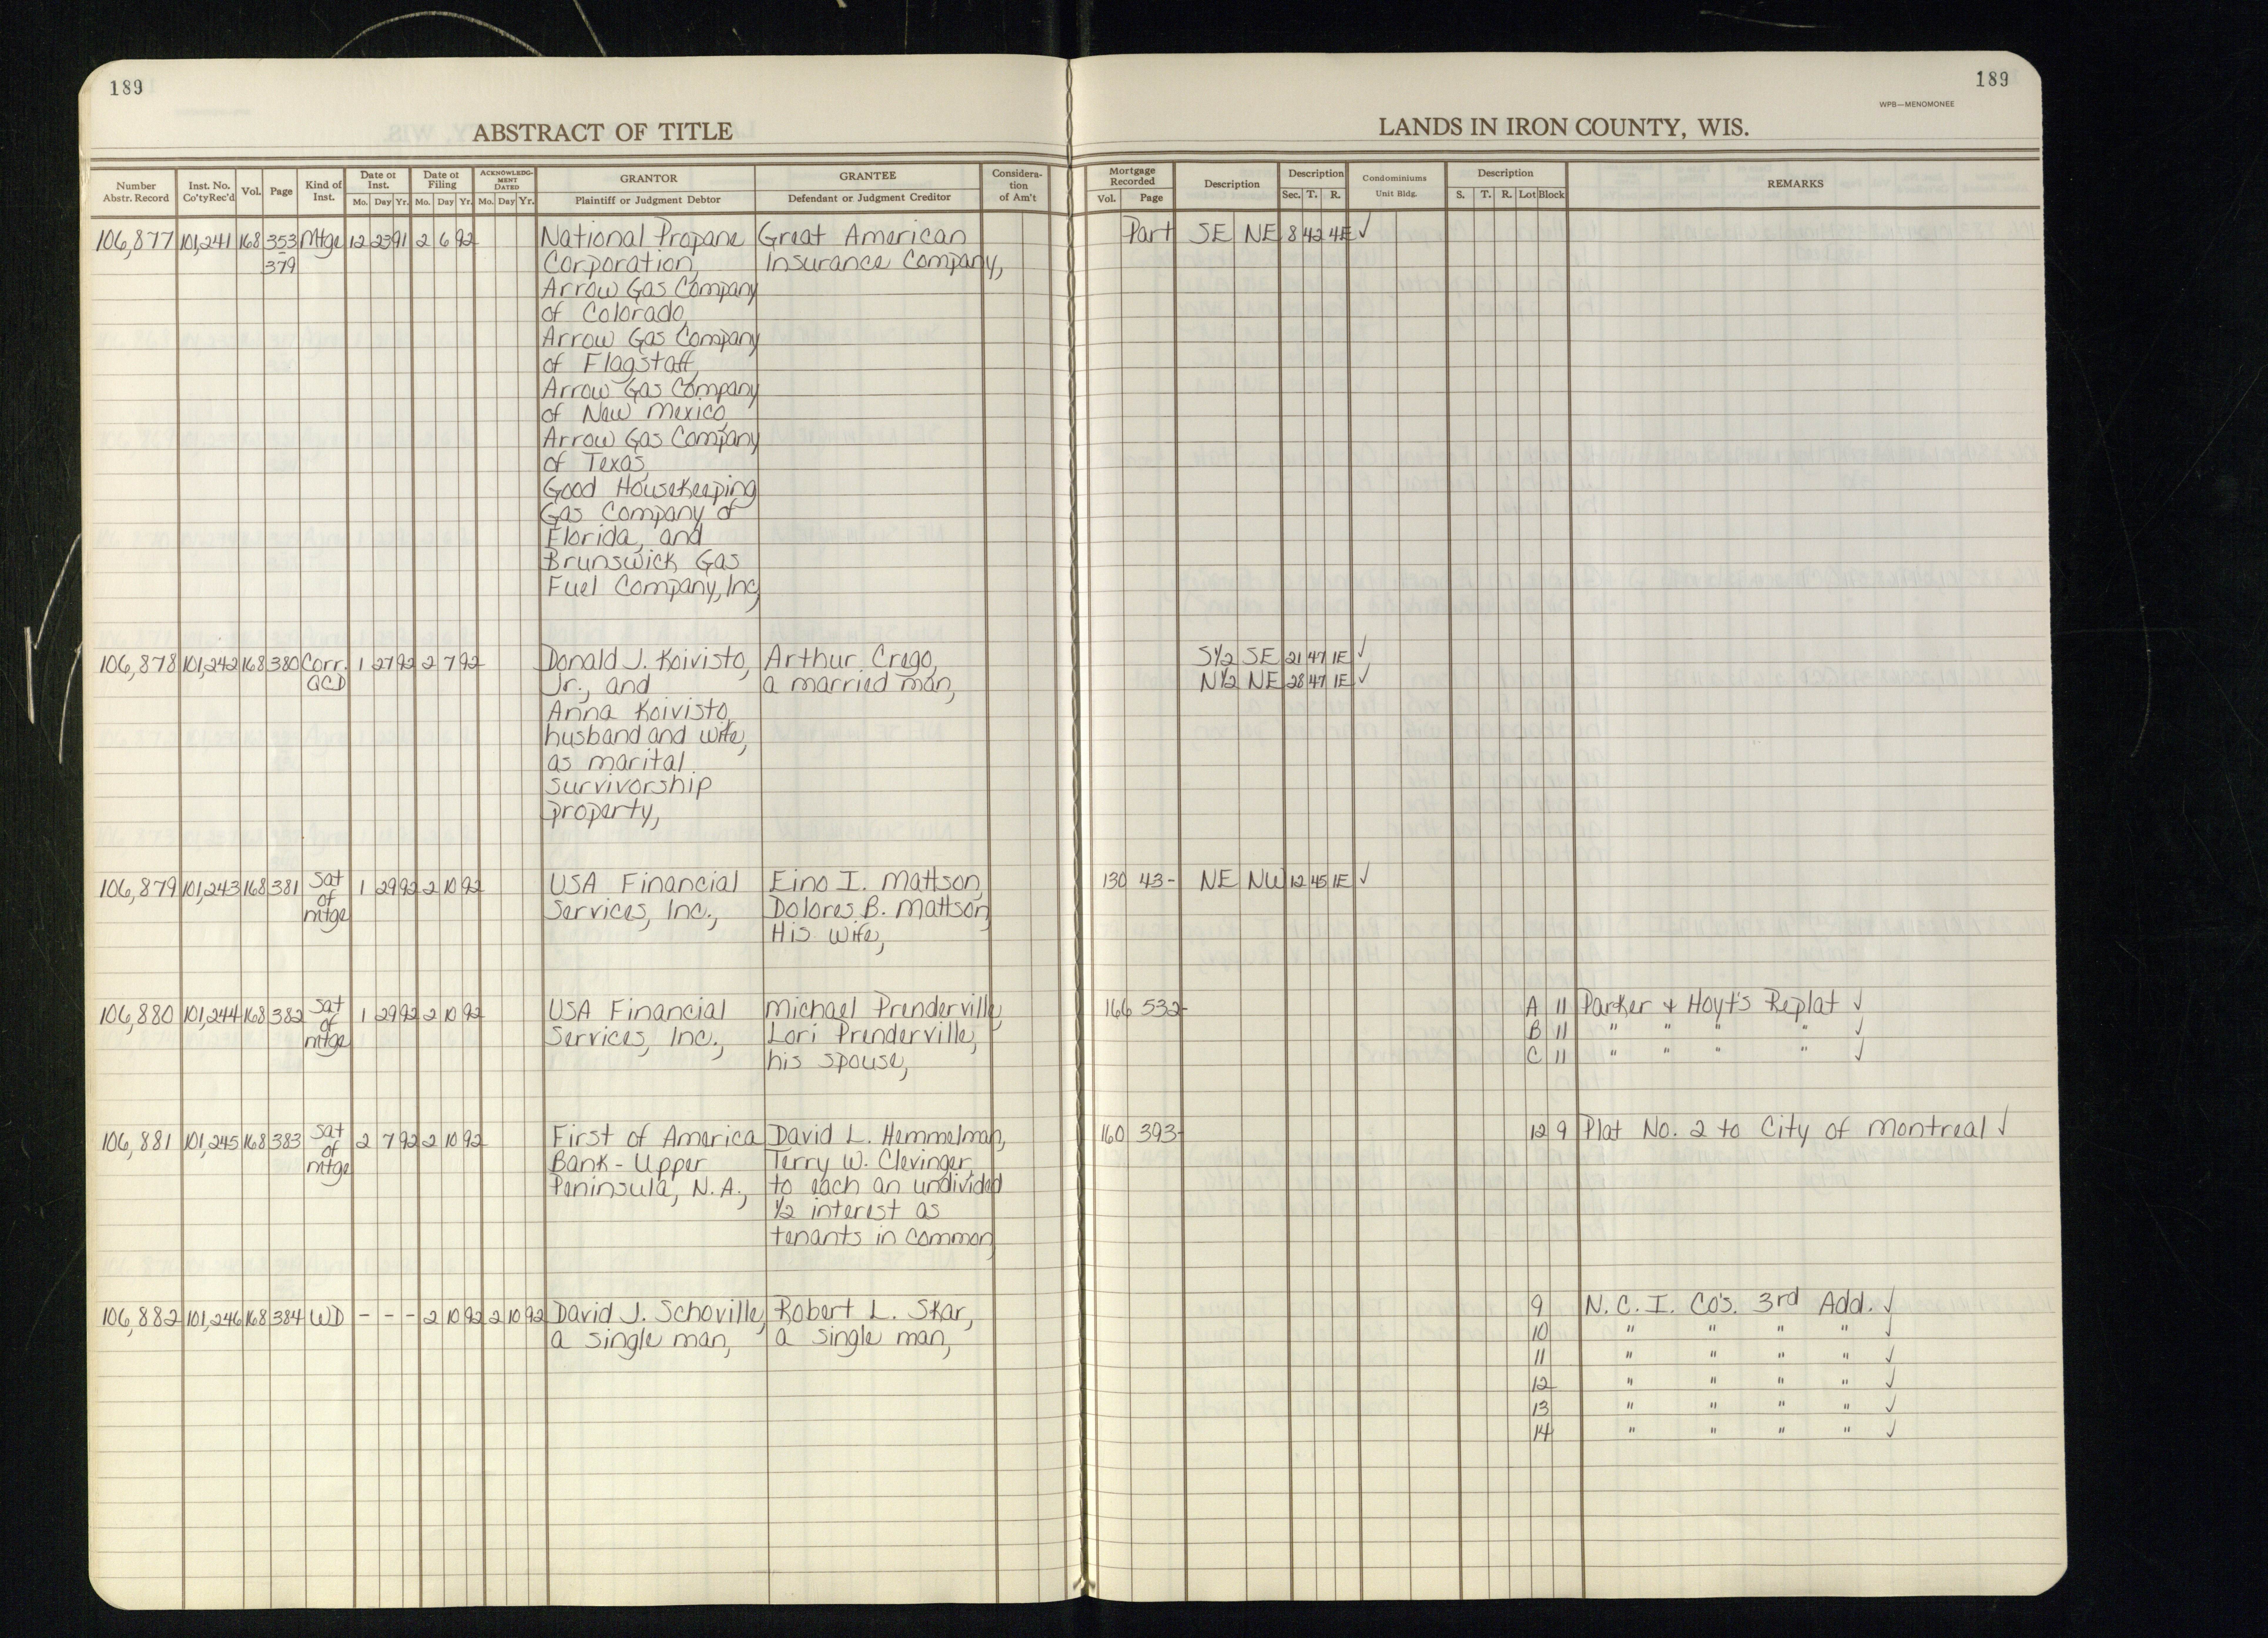 189
189
WPB—MENOMONEE
ABSTRACT OF TITLE
LANDS IN IRON COUNTY, WIS.
Number Abstr. Record | Inst. No. Co'tyRec'd | Vol. | Page | Kind of Inst. | Date of Inst. Mo. Day Yr. | Date of Filing Mo. Day Yr. | ACKNOWLEDGMENT DATED Mo. Day Yr. | GRANTOR Plaintiff or Judgment Debtor | GRANTEE Defendant or Judgment Creditor | Consideration of Am't | Mortgage Recorded Vol. Page | Description | Description Sec. T. R. | Condominiums Unit Bldg. | Description S. T. R. Lot Block | REMARKS
106,877 101,241 168 353 Mtge 12 23 91 2 6 92 National Propane Great American Part SE NE 8 42 4E ✓
379 Corporation, Insurance Company,
Arrow Gas Company
of Colorado,
Arrow Gas Company
of Flagstaff,
Arrow Gas Company
of New Mexico,
Arrow Gas Company
of Texas,
Good Housekeeping
Gas Company of
Florida, and
Brunswick Gas
Fuel Company, Inc,
106,878 101,242 168 380 Corr. 1 27 92 2 7 92 Donald J. Koivisto, Arthur Crego, S½ SE 21 47 1E ✓
QCD Jr., and a married man, N½ NE 28 47 1E ✓
Anna Koivisto,
husband and wife,
as marital
survivorship
property,
106,879 101,243 168 381 Sat 1 29 92 2 10 92 USA Financial Eino I. Mattson, 130 43- NE NW 12 45 1E ✓
of Services, Inc., Dolores B. Mattson,
mtge His wife,
106,880 101,244 168 382 Sat 1 29 92 2 10 92 USA Financial Michael Prenderville, 166 532- A 11 Parker & Hoyt's Replat ✓
of Services, Inc., Lori Prenderville, B 11 " " " " ✓
mtge his spouse, C 11 " " " " ✓
106,881 101,245 168 383 Sat 2 7 92 2 10 92 First of America David L. Hemmelman, 160 393- 12 9 Plat No. 2 to City of Montreal ✓
of Bank - Upper Terry W. Clevinger,
mtge Peninsula, N.A., to each an undivided
½ interest as
tenants in common,
106,882 101,246 168 384 WD - - - 2 10 92 2 10 92 David J. Schoville, Robert L. Skar, 9 N. C. I. Co's. 3rd Add. ✓
a single man, a single man, 10 " " " " ✓
11 " " " " ✓
12 " " " " ✓
13 " " " " ✓
14 " " " " ✓